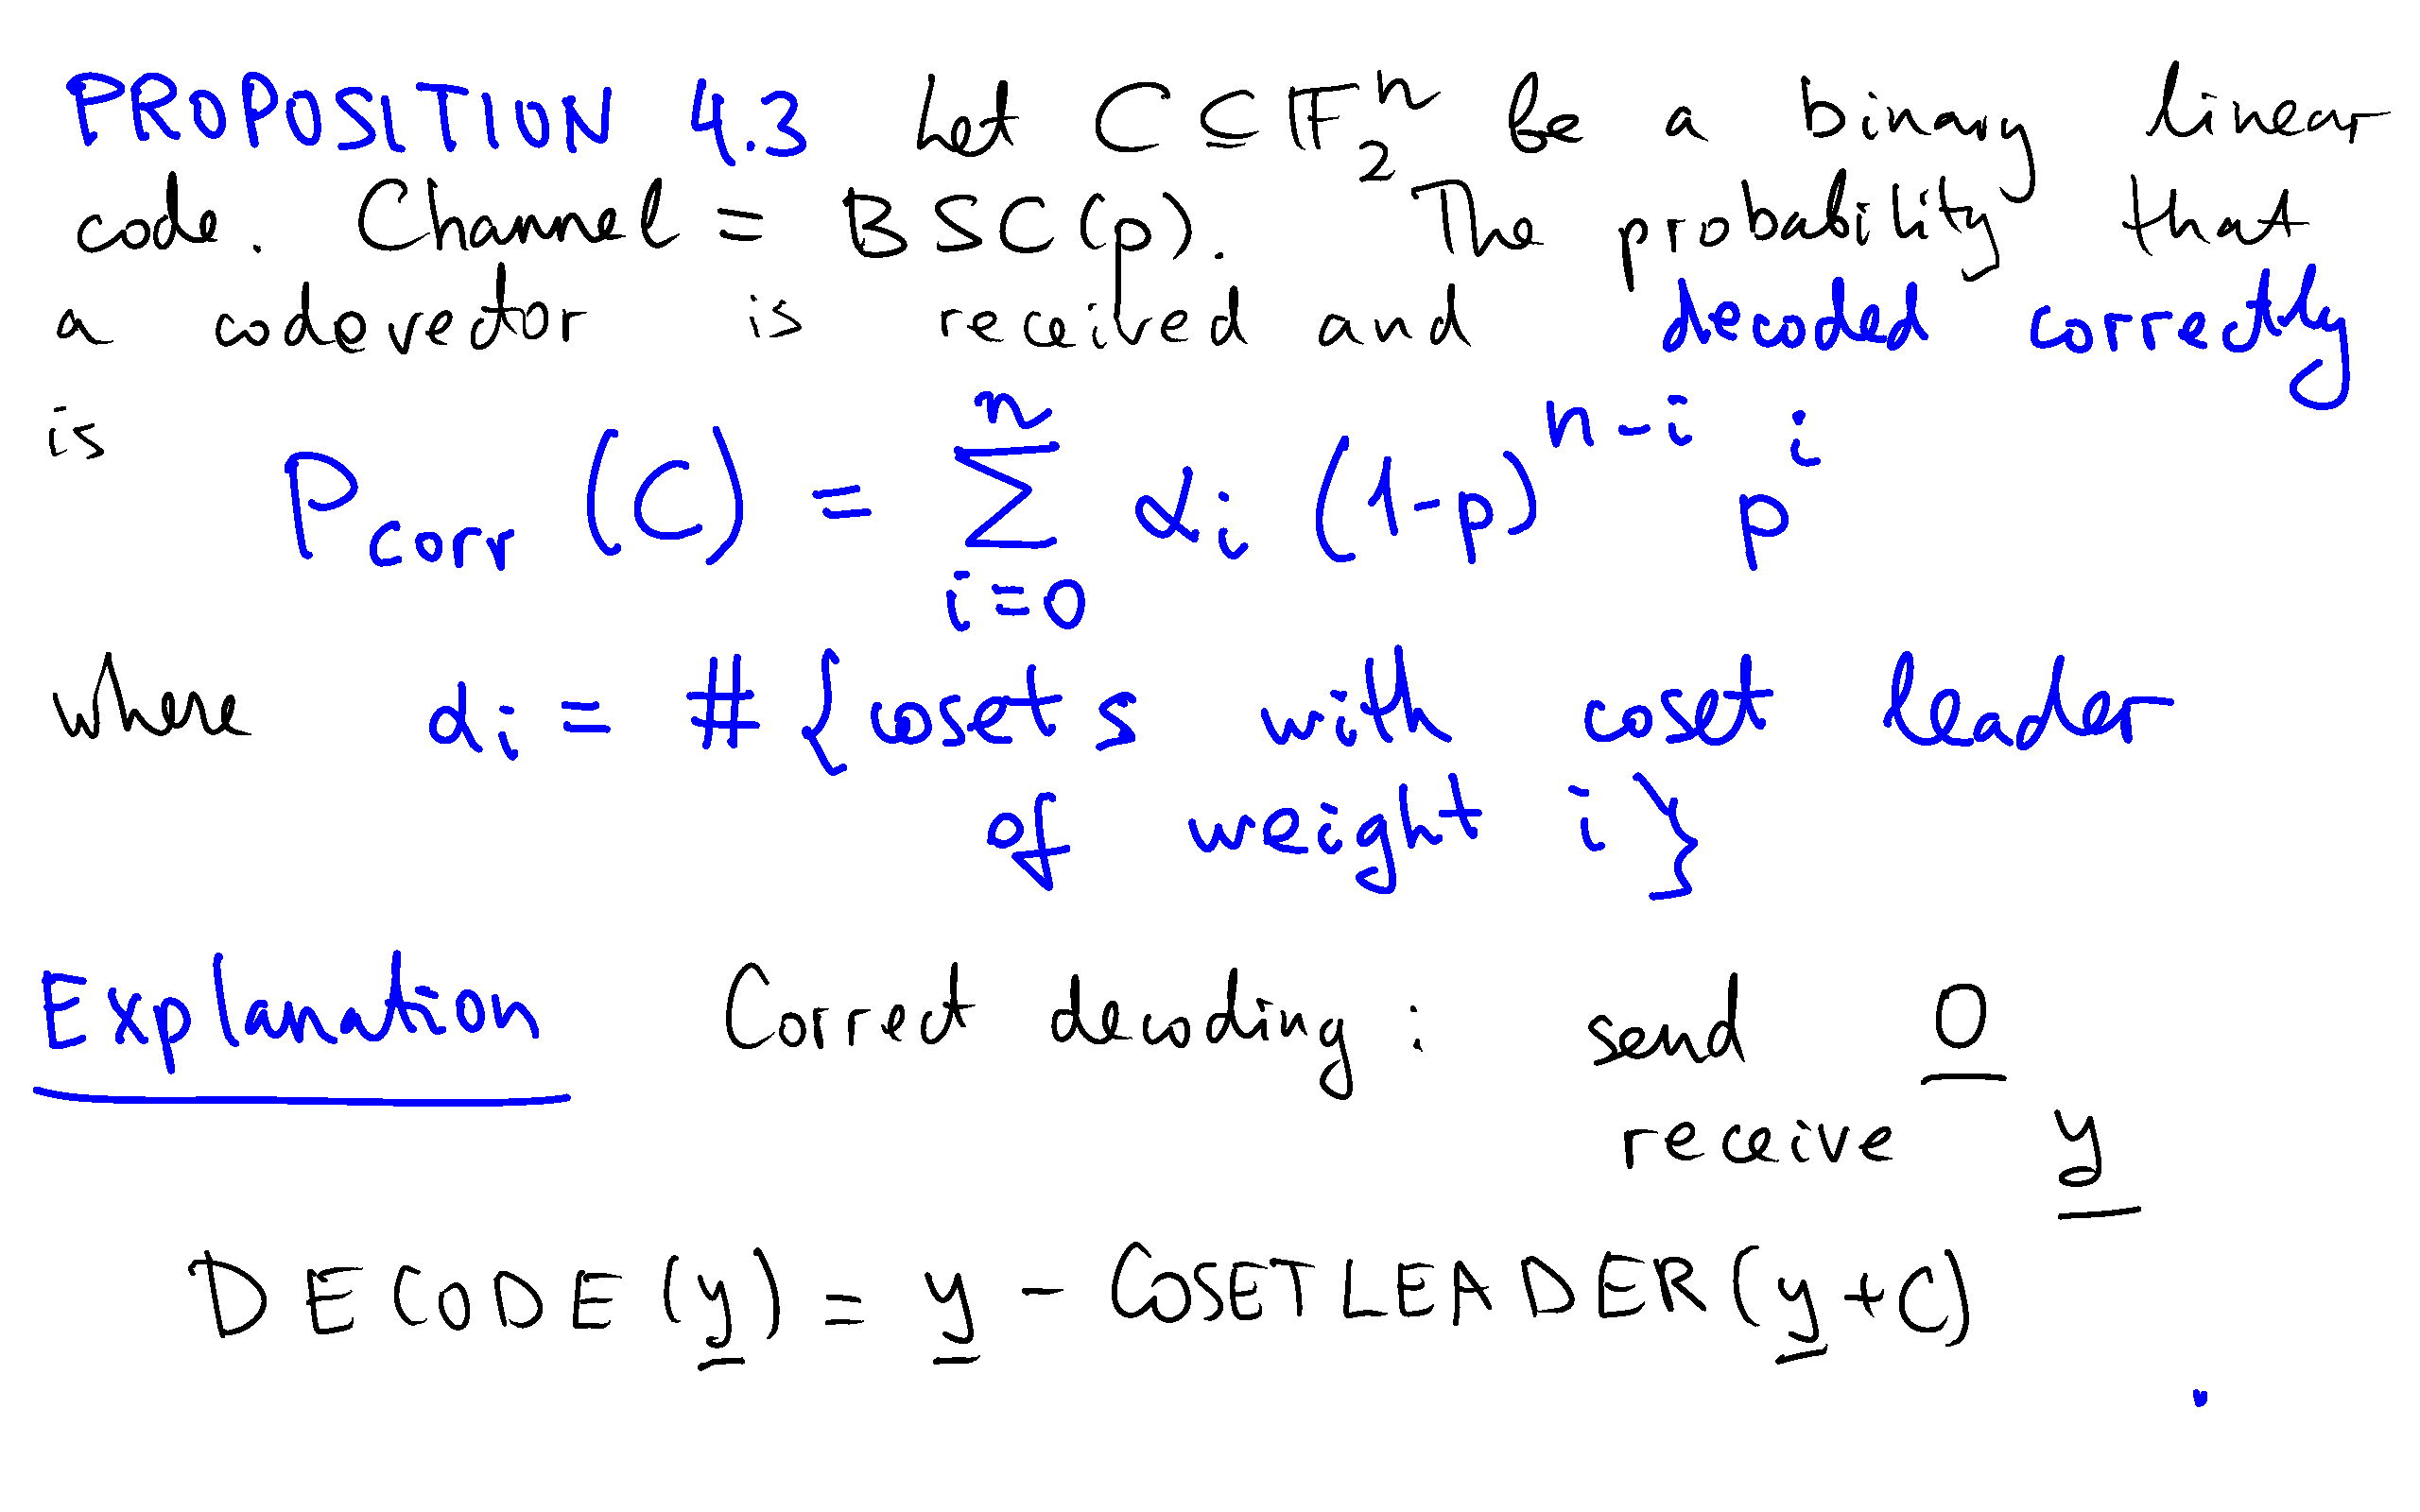 PROPOSITION 4.3 Let C ⊆ 𝔽₂ⁿ be a binary linear
code. Channel = BSC(p). The probability that
a codevector is received and decoded correctly
is P_corr (C) = ∑_{i=0}^{n} α_i (1-p)^{n-i} p^i
where α_i = # {cosets with coset leader
of weight i}
Explanation Correct decoding : send 0
receive y
DECODE(y) = y - COSETLEADER(y+C)